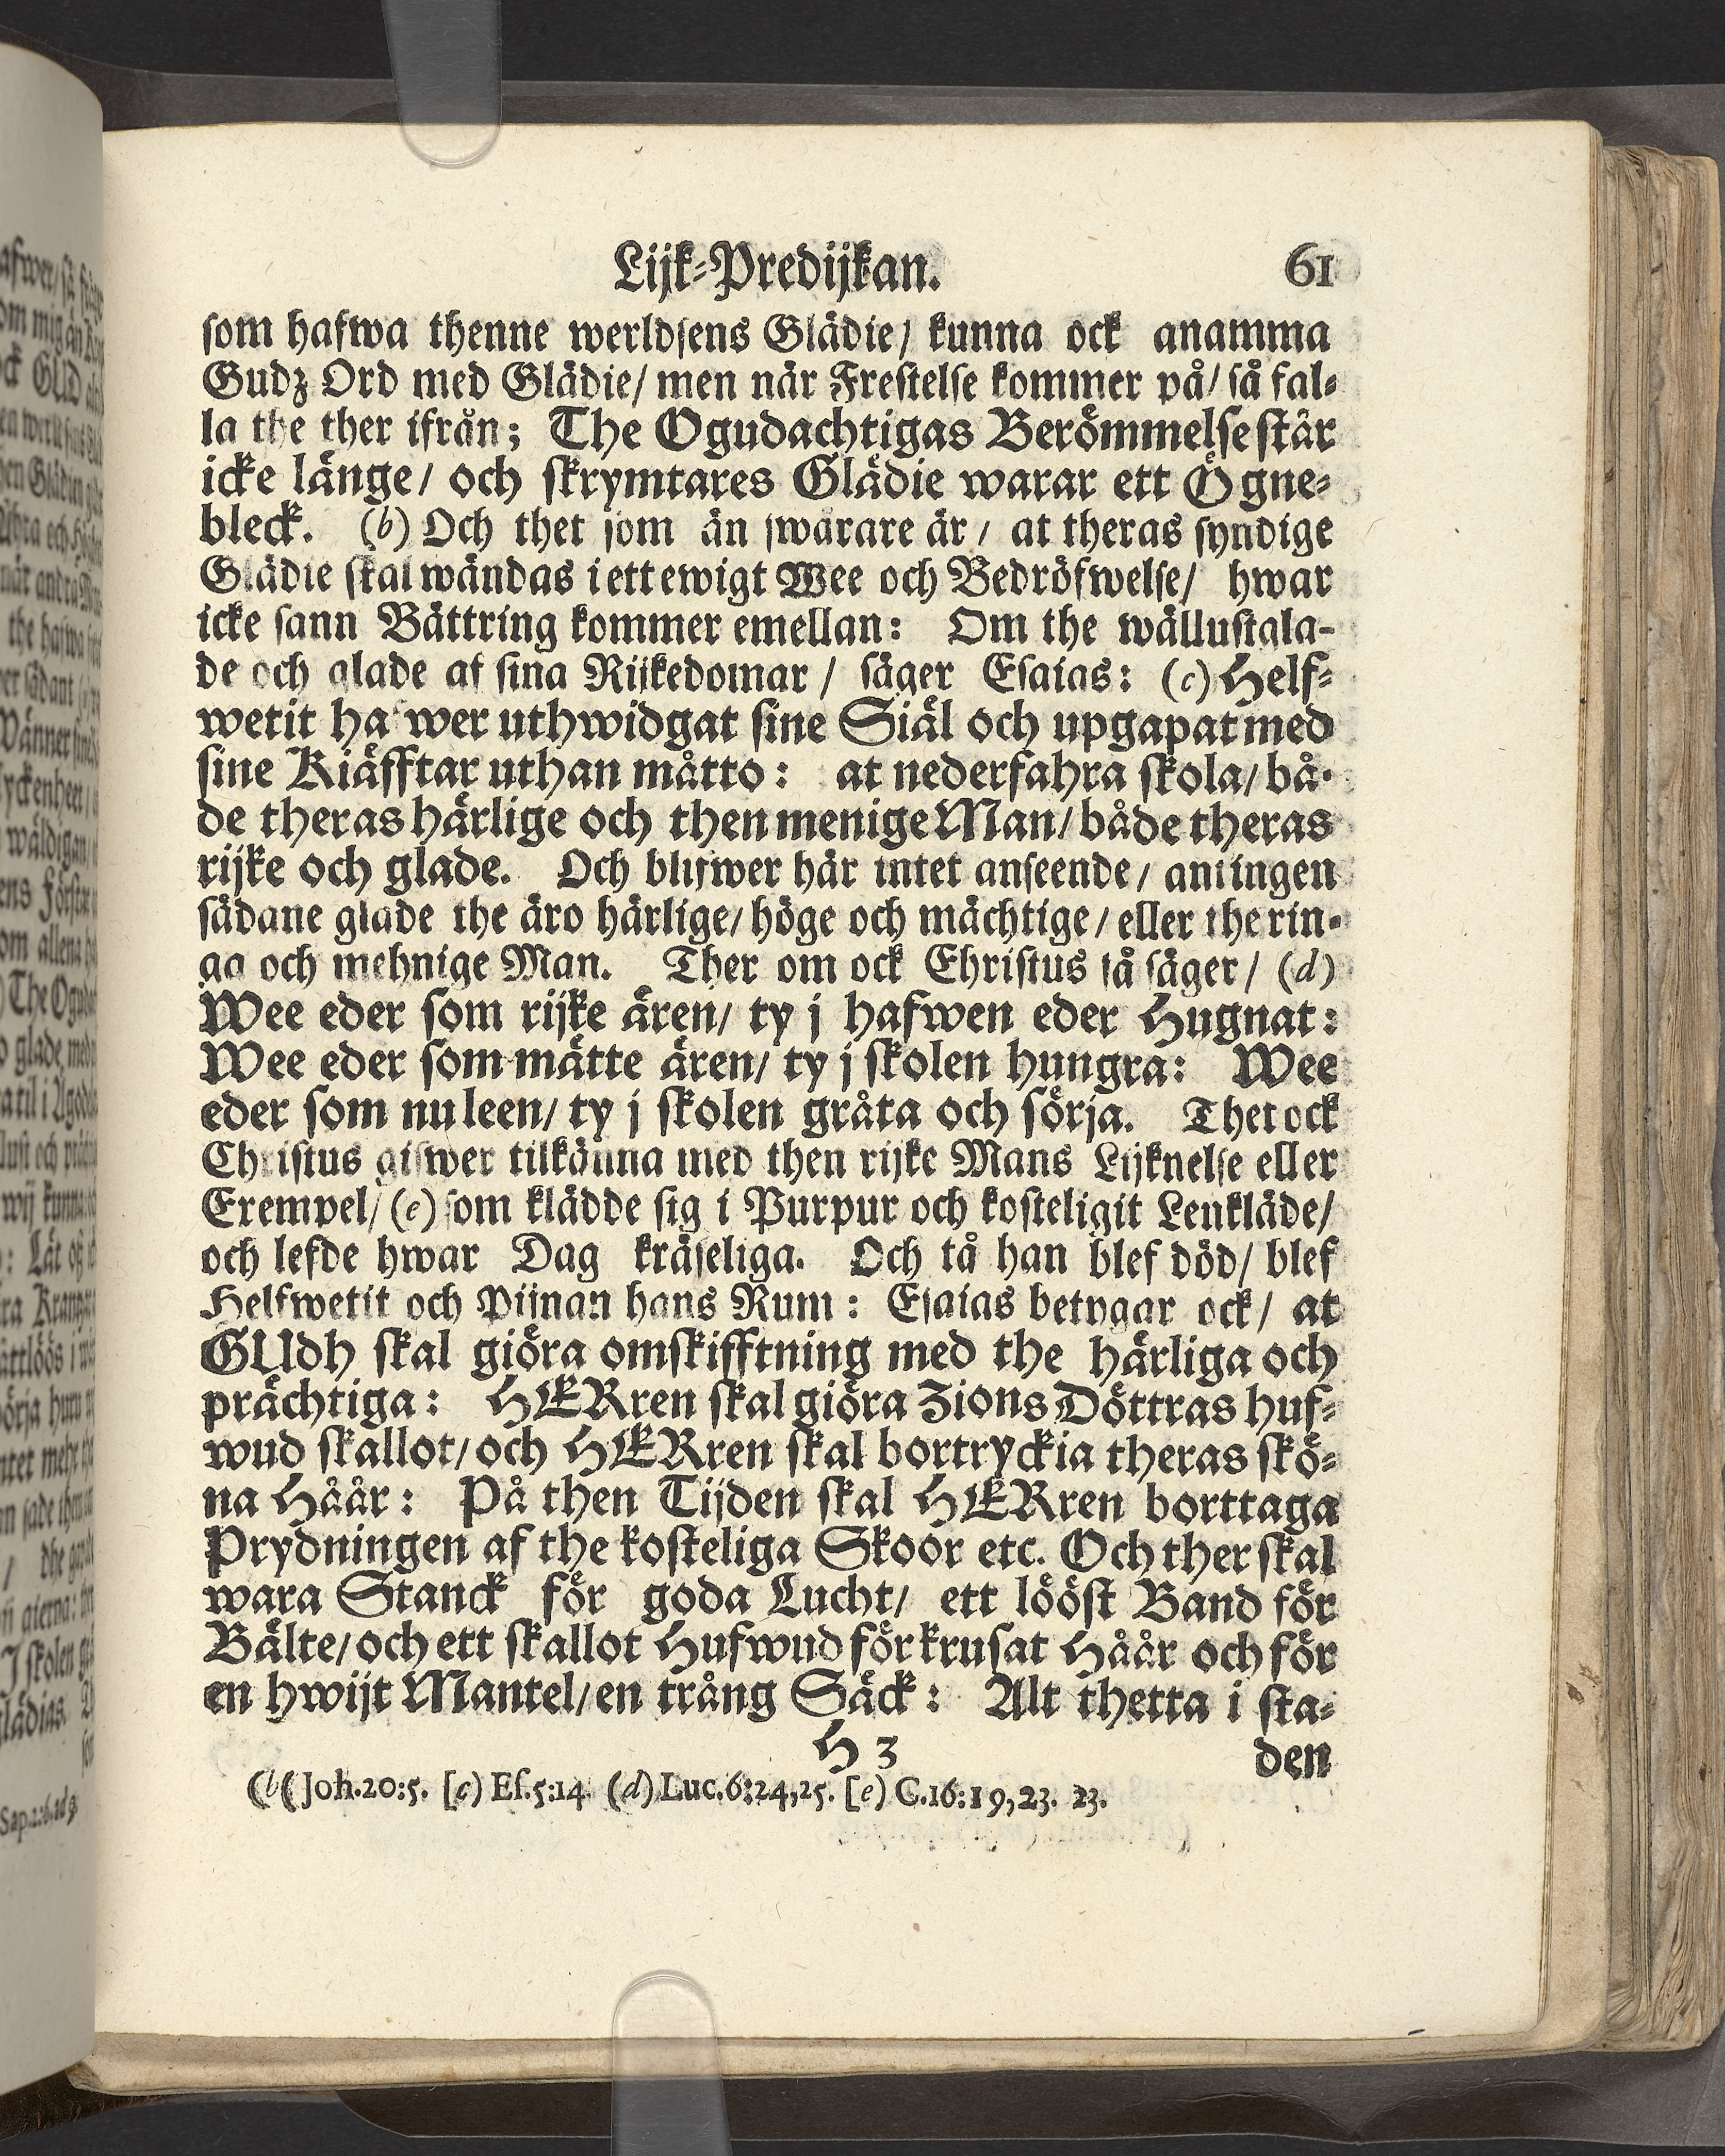 Lijk-Predijkan. 61
som hafwa thenne werldsens Glädie/ kunna ock anamma
Gudz Ord med Glädie/ men när Frestelse kommer på/ så fal-
la the ther ifrån; The Ogudachtigas Berömmelse står
icke länge/ och skrymtares Glädie warar ett Ögne-
bleck. (b) Och thet som än swårare är/ at theras syndige
Glädie skal wändas i ett ewigt Wee och Bedröfwelse/ hwar
icke sann Bättring kommer emellan: Om the wällustgla-
de och glade af sina Rijkedomar/ säger Esaias: (c) Helf-
wetit hafwer uthwidgat sine Siäl och upgapat med
sine Kiäfftar uthan måtto: at nederfahra skola/ bå-
de theras härlige och then menige Man/ både theras
rijke och glade. Och blifwer här intet anseende/ antingen
sådane glade the äro härlige/ höge och mächtige/ eller the rin-
ga och mehnige Man. Ther om ock Christus så säger/ (d)
Wee eder som rijke ären/ ty j hafwen eder Hugnat:
Wee eder som mätte ären/ ty j skolen hungra: Wee
eder som nu leen/ ty j skolen gråta och sörja. Thet ock
Christus gifwer tilkänna med then rijke Mans Lijknelse eller
Exempel/ (e) som klädde sig i Purpur och kosteligit Lenkläde/
och lefde hwar Dag kräseliga. Och tå han blef död/ blef
Helfwetit och Pijnan hans Rum: Esaias betygar ock/ at
GUdh skal giöra omskifftning med the härliga och
prächtiga: HERren skal giöra Zions Döttras huf-
wud skallot/ och HERren skal bortryckia theras skö-
na Håår: På then Tijden skal HERren borttaga
Prydningen af the kosteliga Skoor etc. Och ther skal
wara Stanck för goda Lucht/ ett lööst Band för
Bälte/ och ett skallot Hufwud för krusat Håår och för
en hwijt Mantel/ en trång Säck: Alt thetta i sta-
H 3 den
(b( Joh.20:5. [c) Es.5:14. (d) Luc.6:24,25. [e) C.16:19,23. 23.